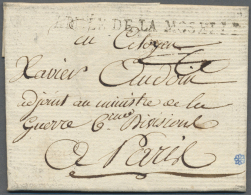 ARMÉE DE LA MOSELLE
au Citoyen
Xavier Audouin
adjoint au ministre de la
Guerre 6me Division
a Paris